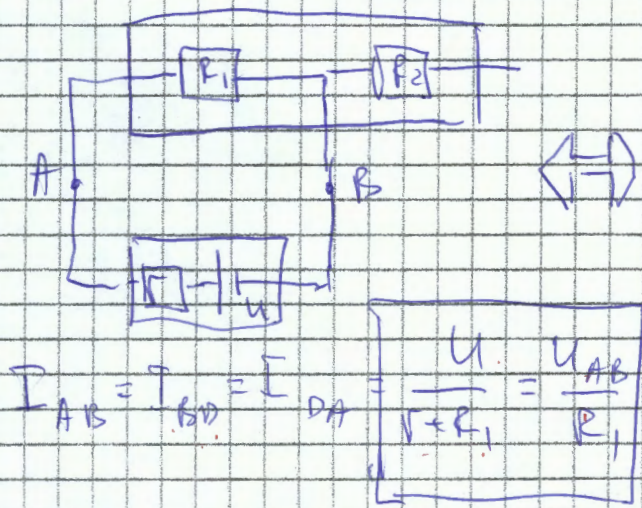 R₁ R₂
A B
r u
I_AB = I_BD = I_DA = U / (r + R₁) = U_AB / R₁